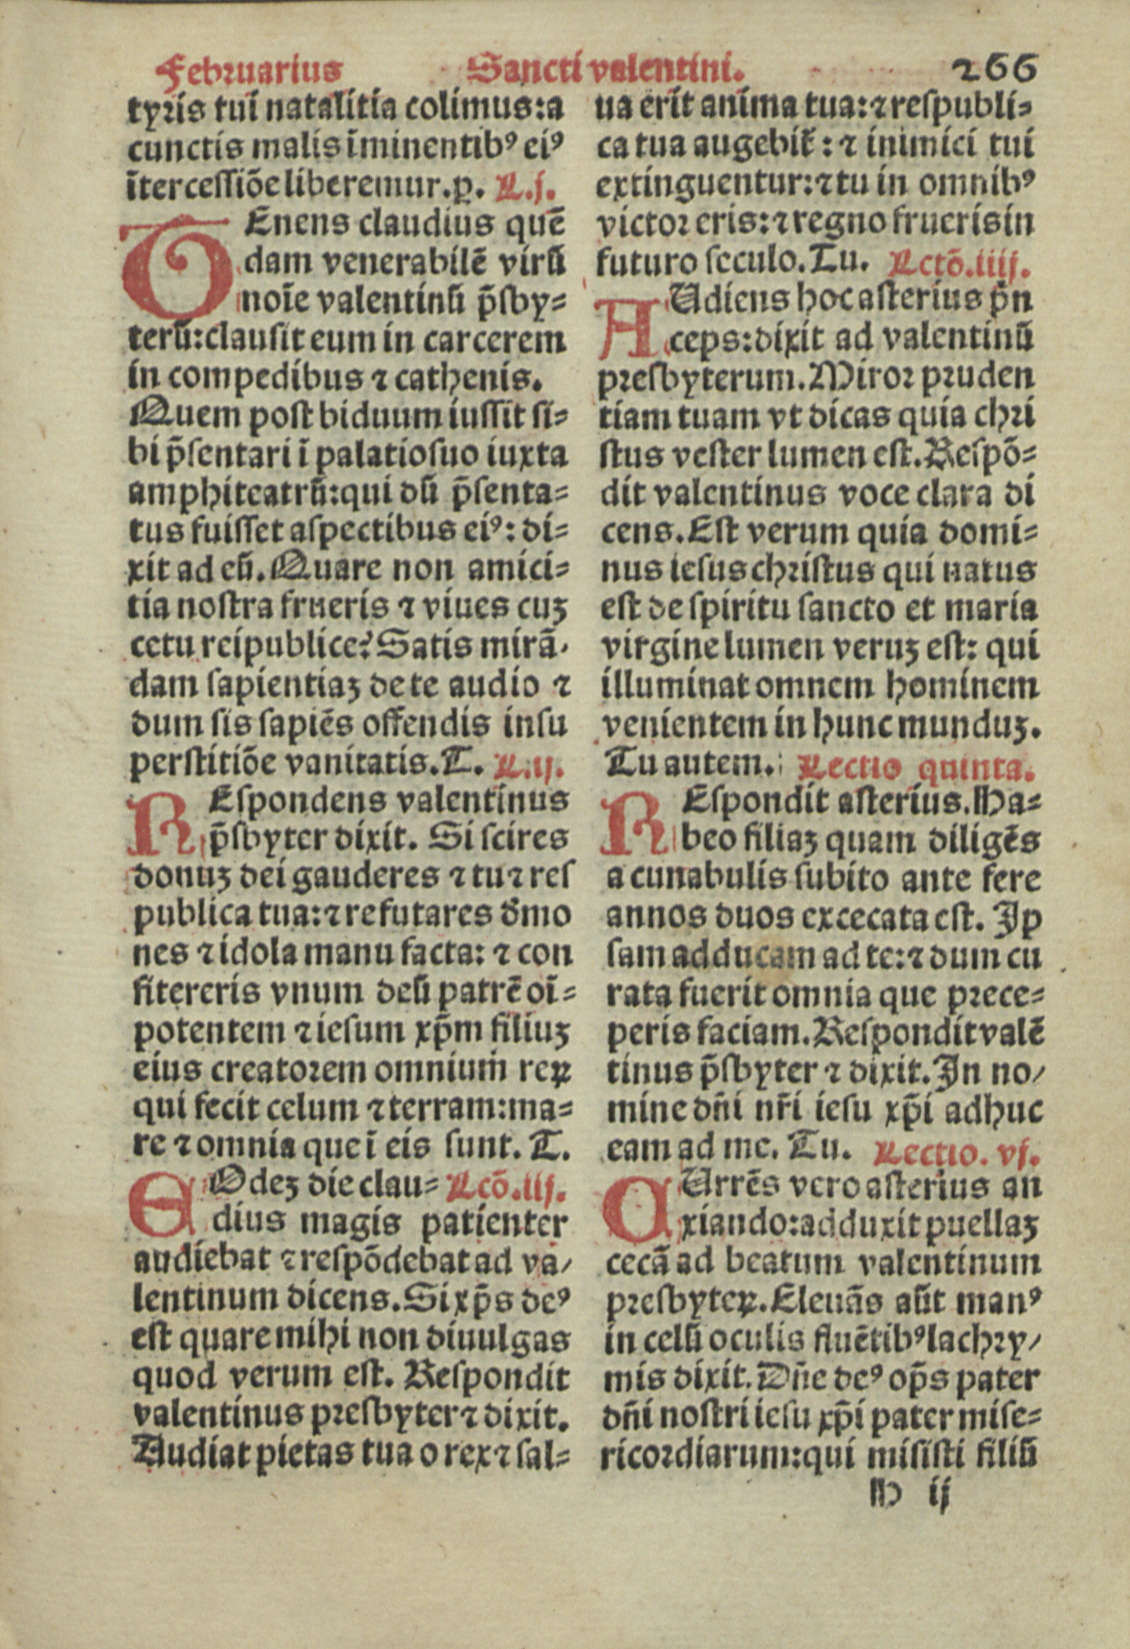 Februarius Sancti valentini. 266
tyris tuĩ natalitia colimus:a
cunctis malis ĩminentibꝰ eiꝰ
ĩtercessiõe liberemur.ꝑ. L.j.
TEnens claudius quẽ
dam venerabilẽ virũ
noĩe valentinũ p̃sby⸗
terũ:clausit eum in carcerem
in compedibus ⁊ cathenis.
Quem post biduum iussit si⸗
bi p̃sentari ĩ palatio suo iuxta
amphiteatrũ:qui dũ p̃senta⸗
tus fuisset aspectibus eiꝰ: di⸗
xit ad eũ. Quare non amici⸗
tia nostra frueris ⁊ viues cuꝫ
cetu reipublice? Satis mirã⸗
dam sapientiaꝫ de te audio ⁊
dum sis sapiẽs offendis in su
perstitiõe vanitatis. T. L.ij.
REspondens valentinus
p̃sbyter dixit. Si scires
donuꝫ dei gauderes ⁊ tu ⁊ res
publica tua:⁊ refutares d̃mo
nes ⁊ idola manu facta: ⁊ con
fitereris vnum deũ patrẽ oĩ⸗
potentem ⁊ iesum xp̃m filiuꝫ
eius creatorem omnium reꝝ
qui fecit celum ⁊ terram:ma⸗
re ⁊ omnia que ĩ eis sunt. T.
EOdeꝫ die clau⸗ Lcõ.iij.
dius magis patienter
audiebat ⁊ respõdebat ad va⸗
lentinum dicens. Si xp̃s deꝰ
est quare mihi non diuulgas
quod verum est. Respondit
valentinus presbyter ⁊ dixit.
Audiat pietas tua o rex ⁊ sal⸗
ua erit anima tua:⁊ respubli⸗
ca tua augebit᷑: ⁊ inimici tui
extinguentur:⁊ tu in omnibꝰ
victor eris:⁊ regno frueris in
futuro seculo. Tu. Lctõ.iiij.
AUdiens hoc asterius p̃n
ceps:dixit ad valentinũ
presbyterum. Miror pruden
tiam tuam vt dicas quia chri
stus vester lumen est. Respõ⸗
dit valentinus voce clara di
cens. Est verum quia domi⸗
nus iesus christus qui natus
est de spiritu sancto et maria
virgine lumen veruꝫ est: qui
illuminat omnem hominem
venientem in hunc munduꝫ.
Tu autem. Lectio quinta.
REspondit asterius. Ha⸗
beo filiaꝫ quam diligẽs
a cunabulis subito ante fere
annos duos excecata est. Ip
sam adducam ad te:⁊ dum cu
rata fuerit omnia que prece⸗
peris faciam. Respondit valẽ
tinus p̃sbyter ⁊ dixit. In no⸗
mine dñi nr̃i iesu xp̃i adhuc
eam ad me. Tu. Lectio. vj.
CUrrẽs vero asterius an
xiando:adduxit puellaꝫ
cecã ad beatum valentinum
presbyteꝝ. Eleuãs aũt manꝰ
in celũ oculis fluẽtibꝰ lachry⸗
mis dixit. Dñe deꝰ op̃s pater
dñi nostri iesu xp̃i pater mise⸗
ricordiarum:qui misisti filiũ
H ij